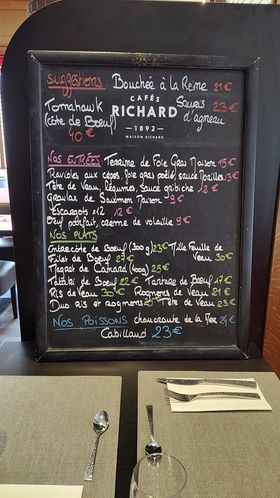 Suggestions Bouchée à la Reine 21 €
CAFÉS
RICHARD
1892
MAISON RICHARD
Tomahawk
(côte de Boeuf)
40 €
Souris 23 €
d'agneau
Nos Entrées Terrine de Foie Gras Maison 15 €
Ravioles aux cèpes, foie gras poêlé, sauce Morilles 13 €
Tête de Veau, légumes, sauce gribiche 12 €
Gravlax de Saumon Maison 9 €
Escargots x12 12 €
Oeuf parfait, crème de volaille 9 €
Nos Plats
Entrecôte de Boeuf (300 g) 23 € Mille Feuille de
Filet de Boeuf 27 € Veau 30 €
Magret de Canard (400g) 25 €
Tataki de Boeuf 22 € Tartare de Boeuf 17 €
Ris de Veau 30 € Rognons de Veau 21 €
Duo Ris et Rognons 26 Tête de Veau 23 €
Nos Poissons choucroute de la Mer 24 €
Cabillaud 23 €